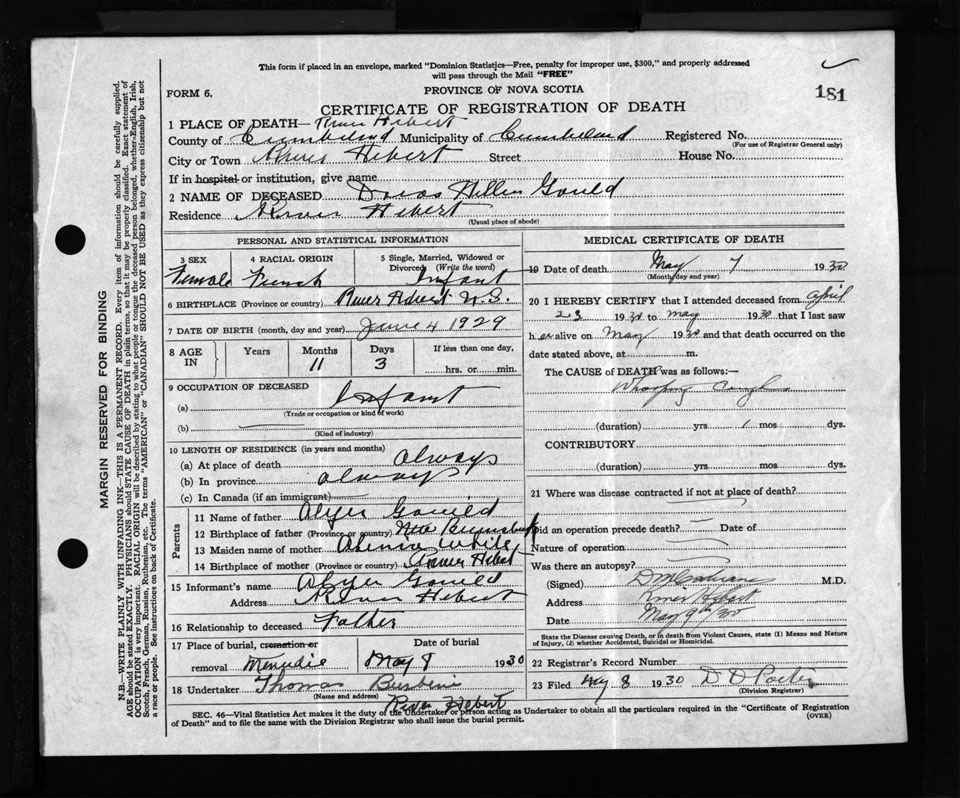 This form if placed in an envelope, marked "Dominion Statistics—Free, penalty for improper use, $300," and properly addressed
will pass through the Mail "FREE"
FORM 6.
PROVINCE OF NOVA SCOTIA
181
CERTIFICATE OF REGISTRATION OF DEATH
1 PLACE OF DEATH— River Hebert
County of Cumberland Municipality of Cumberland Registered No.
(For use of Registrar General only)
City or Town River Hebert Street House No.
If in hospital or institution, give name
2 NAME OF DECEASED Gould
Residence River Hebert
(Usual place of abode)
PERSONAL AND STATISTICAL INFORMATION
3 SEX 4 RACIAL ORIGIN 5 Single, Married, Widowed or Divorced (Write the word)
Female French Infant
6 BIRTHPLACE (Province or country) River Hebert N.S.
7 DATE OF BIRTH (month, day and year) June 4 1929
8 AGE IN Years Months Days If less than one day,
11 3 hrs. or min.
9 OCCUPATION OF DECEASED
(a) Infant
(Trade or occupation or kind of work)
(b)
(Kind of industry)
10 LENGTH OF RESIDENCE (in years and months)
(a) At place of death always
(b) In province always
(c) In Canada (if an immigrant)
Parents
11 Name of father Gould
12 Birthplace of father (Province or country) New Brunswick
13 Maiden name of mother White
14 Birthplace of mother (Province or country) River Hebert
15 Informant's name Gould
Address River Hebert
16 Relationship to deceased Father
17 Place of burial, cremation or Date of burial
removal Menudie May 8 1930
18 Undertaker Thomas
(Name and address)
River Hebert
MEDICAL CERTIFICATE OF DEATH
19 Date of death May 7 1930
(Month, day and year)
20 I HEREBY CERTIFY that I attended deceased from April
23 1930 to May 1930 that I last saw
h er alive on May 1930 and that death occurred on the
date stated above, at m.
The CAUSE of DEATH was as follows:—
Whooping Cough
(duration) yrs 1 mos dys.
CONTRIBUTORY
(duration) yrs mos dys.
21 Where was disease contracted if not at place of death?
Did an operation precede death? Date of
Nature of operation
Was there an autopsy?
(Signed) M.D.
Address River Hebert
Date May 9th/30
State the Disease causing Death, or in death from Violent Causes, state (1) Means and Nature
of Injury, (2) whether Accidental, Suicidal or Homicidal.
22 Registrar's Record Number
23 Filed May 8 1930 D D Porter
(Division Registrar)
SEC. 46—Vital Statistics Act makes it the duty of the Undertaker or person acting as Undertaker to obtain all the particulars required in the "Certificate of Registration
of Death" and to file the same with the Division Registrar who shall issue the burial permit.
(OVER)
MARGIN RESERVED FOR BINDING
N.B.—WRITE PLAINLY WITH UNFADING INK—THIS IS A PERMANENT RECORD. Every item of information should be carefully supplied.
AGE should be stated EXACTLY. PHYSICIANS should STATE CAUSE OF DEATH in plain terms, so that it may be properly classified. Exact statement of
OCCUPATION is very important. RACIAL ORIGIN will be described by stating to what people or tongue the deceased person belonged, whether—English, Irish,
Scotch, French, German, Russian, Ruthenian, etc. The terms "AMERICAN" or "CANADIAN" SHOULD NOT BE USED as they express citizenship but not
a race or people. See instructions on back of Certificate.